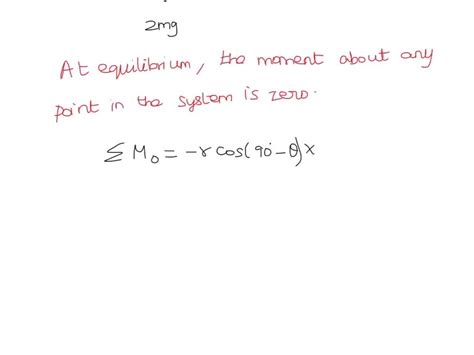 2mg
At equilibrium, the moment about any
point in the system is zero.
∑ M₀ = -r cos(90° - θ) x